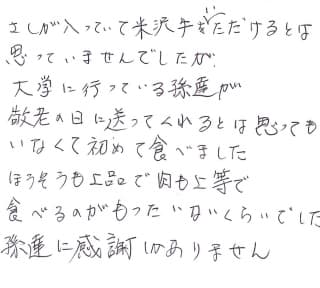 さしが入っていて米沢牛をいただけるとは
思っていませんでしたが、
大学に行っている孫達が
敬老の日に送ってくれるとは思っても
いなくて初めて食べました
ほうそうも上品で肉も上等で
食べるのがもったいないくらいでした
孫達に感謝しかありません